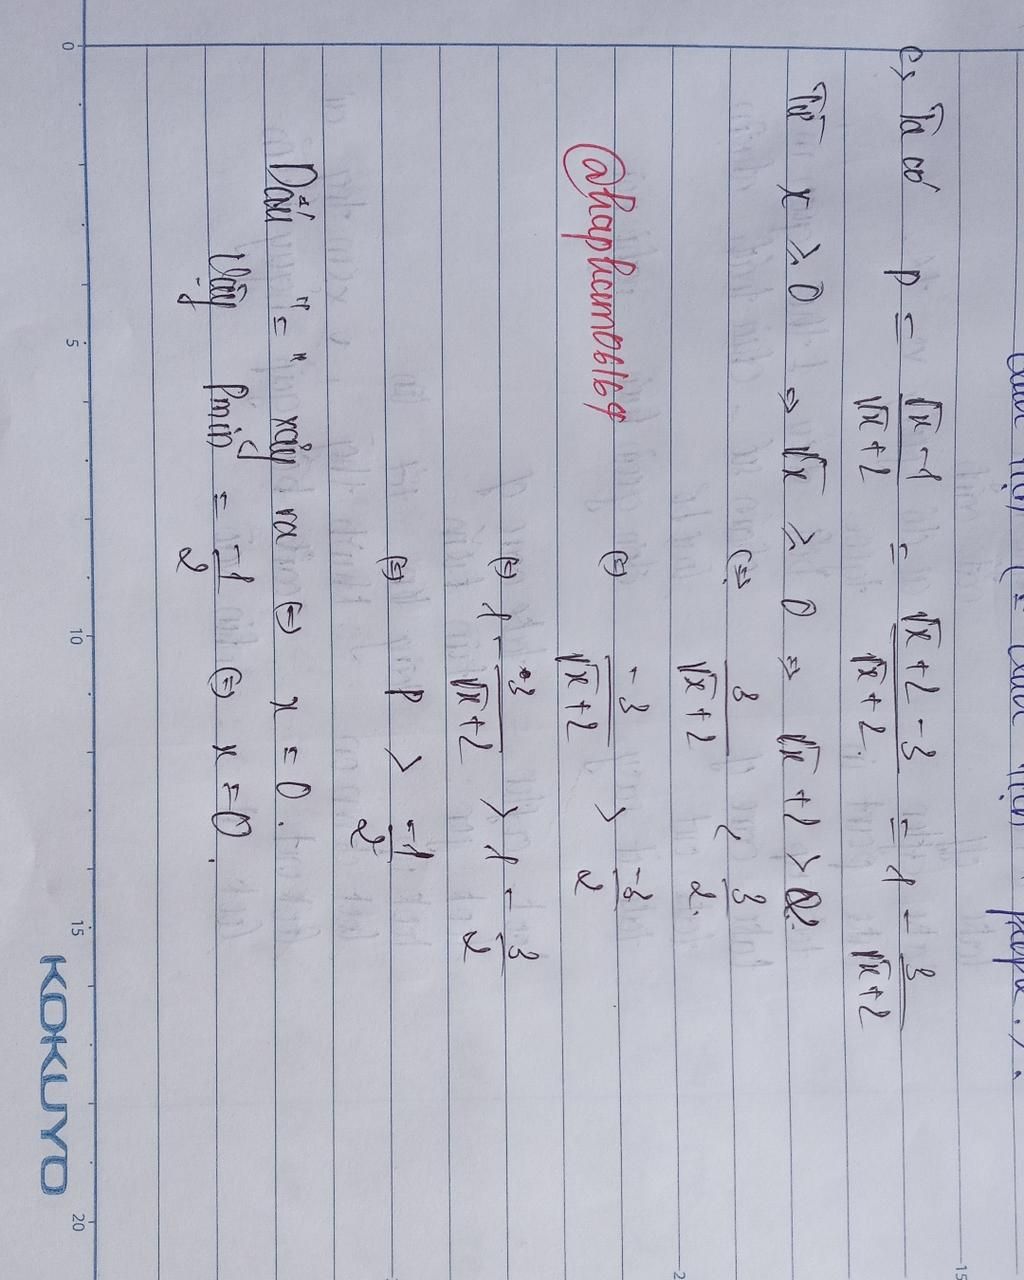 c, Ta có P = \frac{\sqrt{x} - 1}{\sqrt{x} + 2} = \frac{\sqrt{x} + 2 - 3}{\sqrt{x} + 2} = 1 - \frac{3}{\sqrt{x} + 2}
Từ x ≥ 0 ⇒ \sqrt{x} ≥ 0 ⇒ \sqrt{x} + 2 > 2
(=) \frac{3}{\sqrt{x} + 2} < \frac{3}{2}
@haphctm06169
(=) \frac{-3}{\sqrt{x} + 2} > \frac{-3}{2}
(=) 1 - \frac{3}{\sqrt{x} + 2} > 1 - \frac{3}{2}
(=) P > \frac{-1}{2}
Dấu "=" xảy ra (=) x = 0.
Vậy Pmin = \frac{-1}{2} (=) x = 0.
0 5 10 15 20
KOKUYO